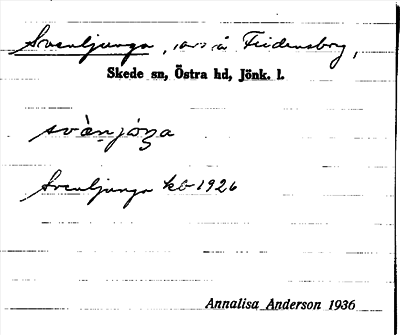 Svenljunga, avs å Fridensborg,
Skede sn, Östra hd, Jönk. l.
svä̀njoŋa
Svenljunga kb 1926
Annalisa Anderson 1936